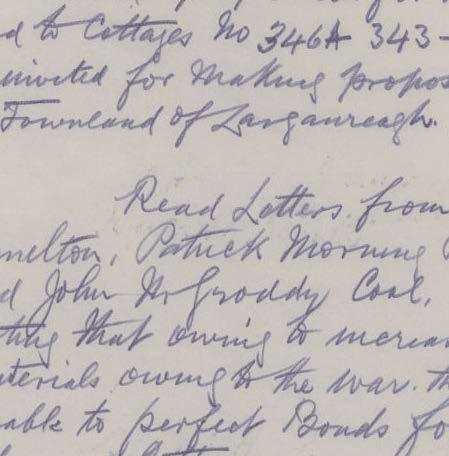 d to Cottages No 346A 343-
invited for Making propos
Townland of Larganreagh.
Read Letters from
melton, Patrick Morning
d John McGroddy Coal,
ting that owing to increas
terials owing to the war. th
able to perfect Bonds fo